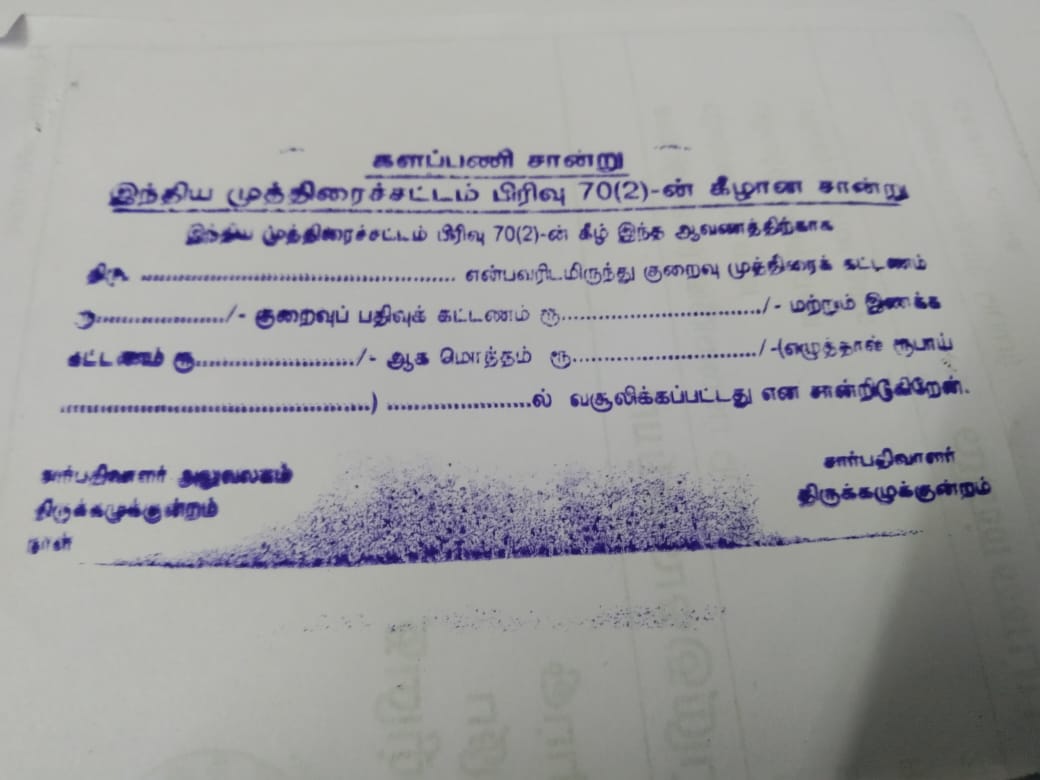 களப்பணி சான்று
இந்திய முத்திரைச்சட்டம் பிரிவு 70(2)-ன் கீழான சான்று
இந்திய முத்திரைச்சட்டம் பிரிவு 70(2)-ன் கீழ் இந்த ஆவணத்திற்காக
திரு. ................................................ என்பவரிடமிருந்து குறைவு முத்திரைக் கட்டணம்
ரூ...................../- குறைவுப் பதிவுக் கட்டணம் ரூ............................../- மற்றும் இணக்க
கட்டணம் ரூ......................../- ஆக மொத்தம் ரூ............................/-(எழுத்தால் ரூபாய்
................................................) ......................ல் வசூலிக்கப்பட்டது என சான்றிடுகிறேன்.
சார்பதிவாளர் அலுவலகம்
திருக்கழுக்குன்றம்
நாள்
சார்பதிவாளர்
திருக்கழுக்குன்றம்